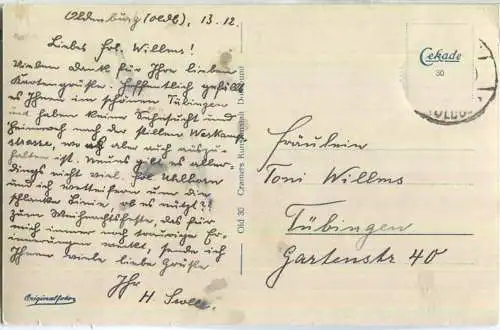 Oldenburg (Oldb), 13.12.
Liebes Frl. Willms!
Vielen Dank für Ihre lieben
Kartengrüße. Hoffentlich gefällt
es Ihnen im schönen Tübingen
und haben keine Sehnsucht und
Heimweh nach der stillen
wo es aber auch auszu-
halten ist. es aller-
dings nicht viel. Frl.
und ich wetteifern um die
schlanke Linie, ob es nützt?!
Zum Weihnachtsfeste, das für
mich immer noch traurige Er-
innerungen weckt, sende ich
Ihnen viele liebe Grüße
Ihr
H.
Originalfoto
Old 30 Cramers Kunstanstalt Dortmund
Cekade
30
Fräulein
Toni Willms
Tübingen
Gartenstr 40